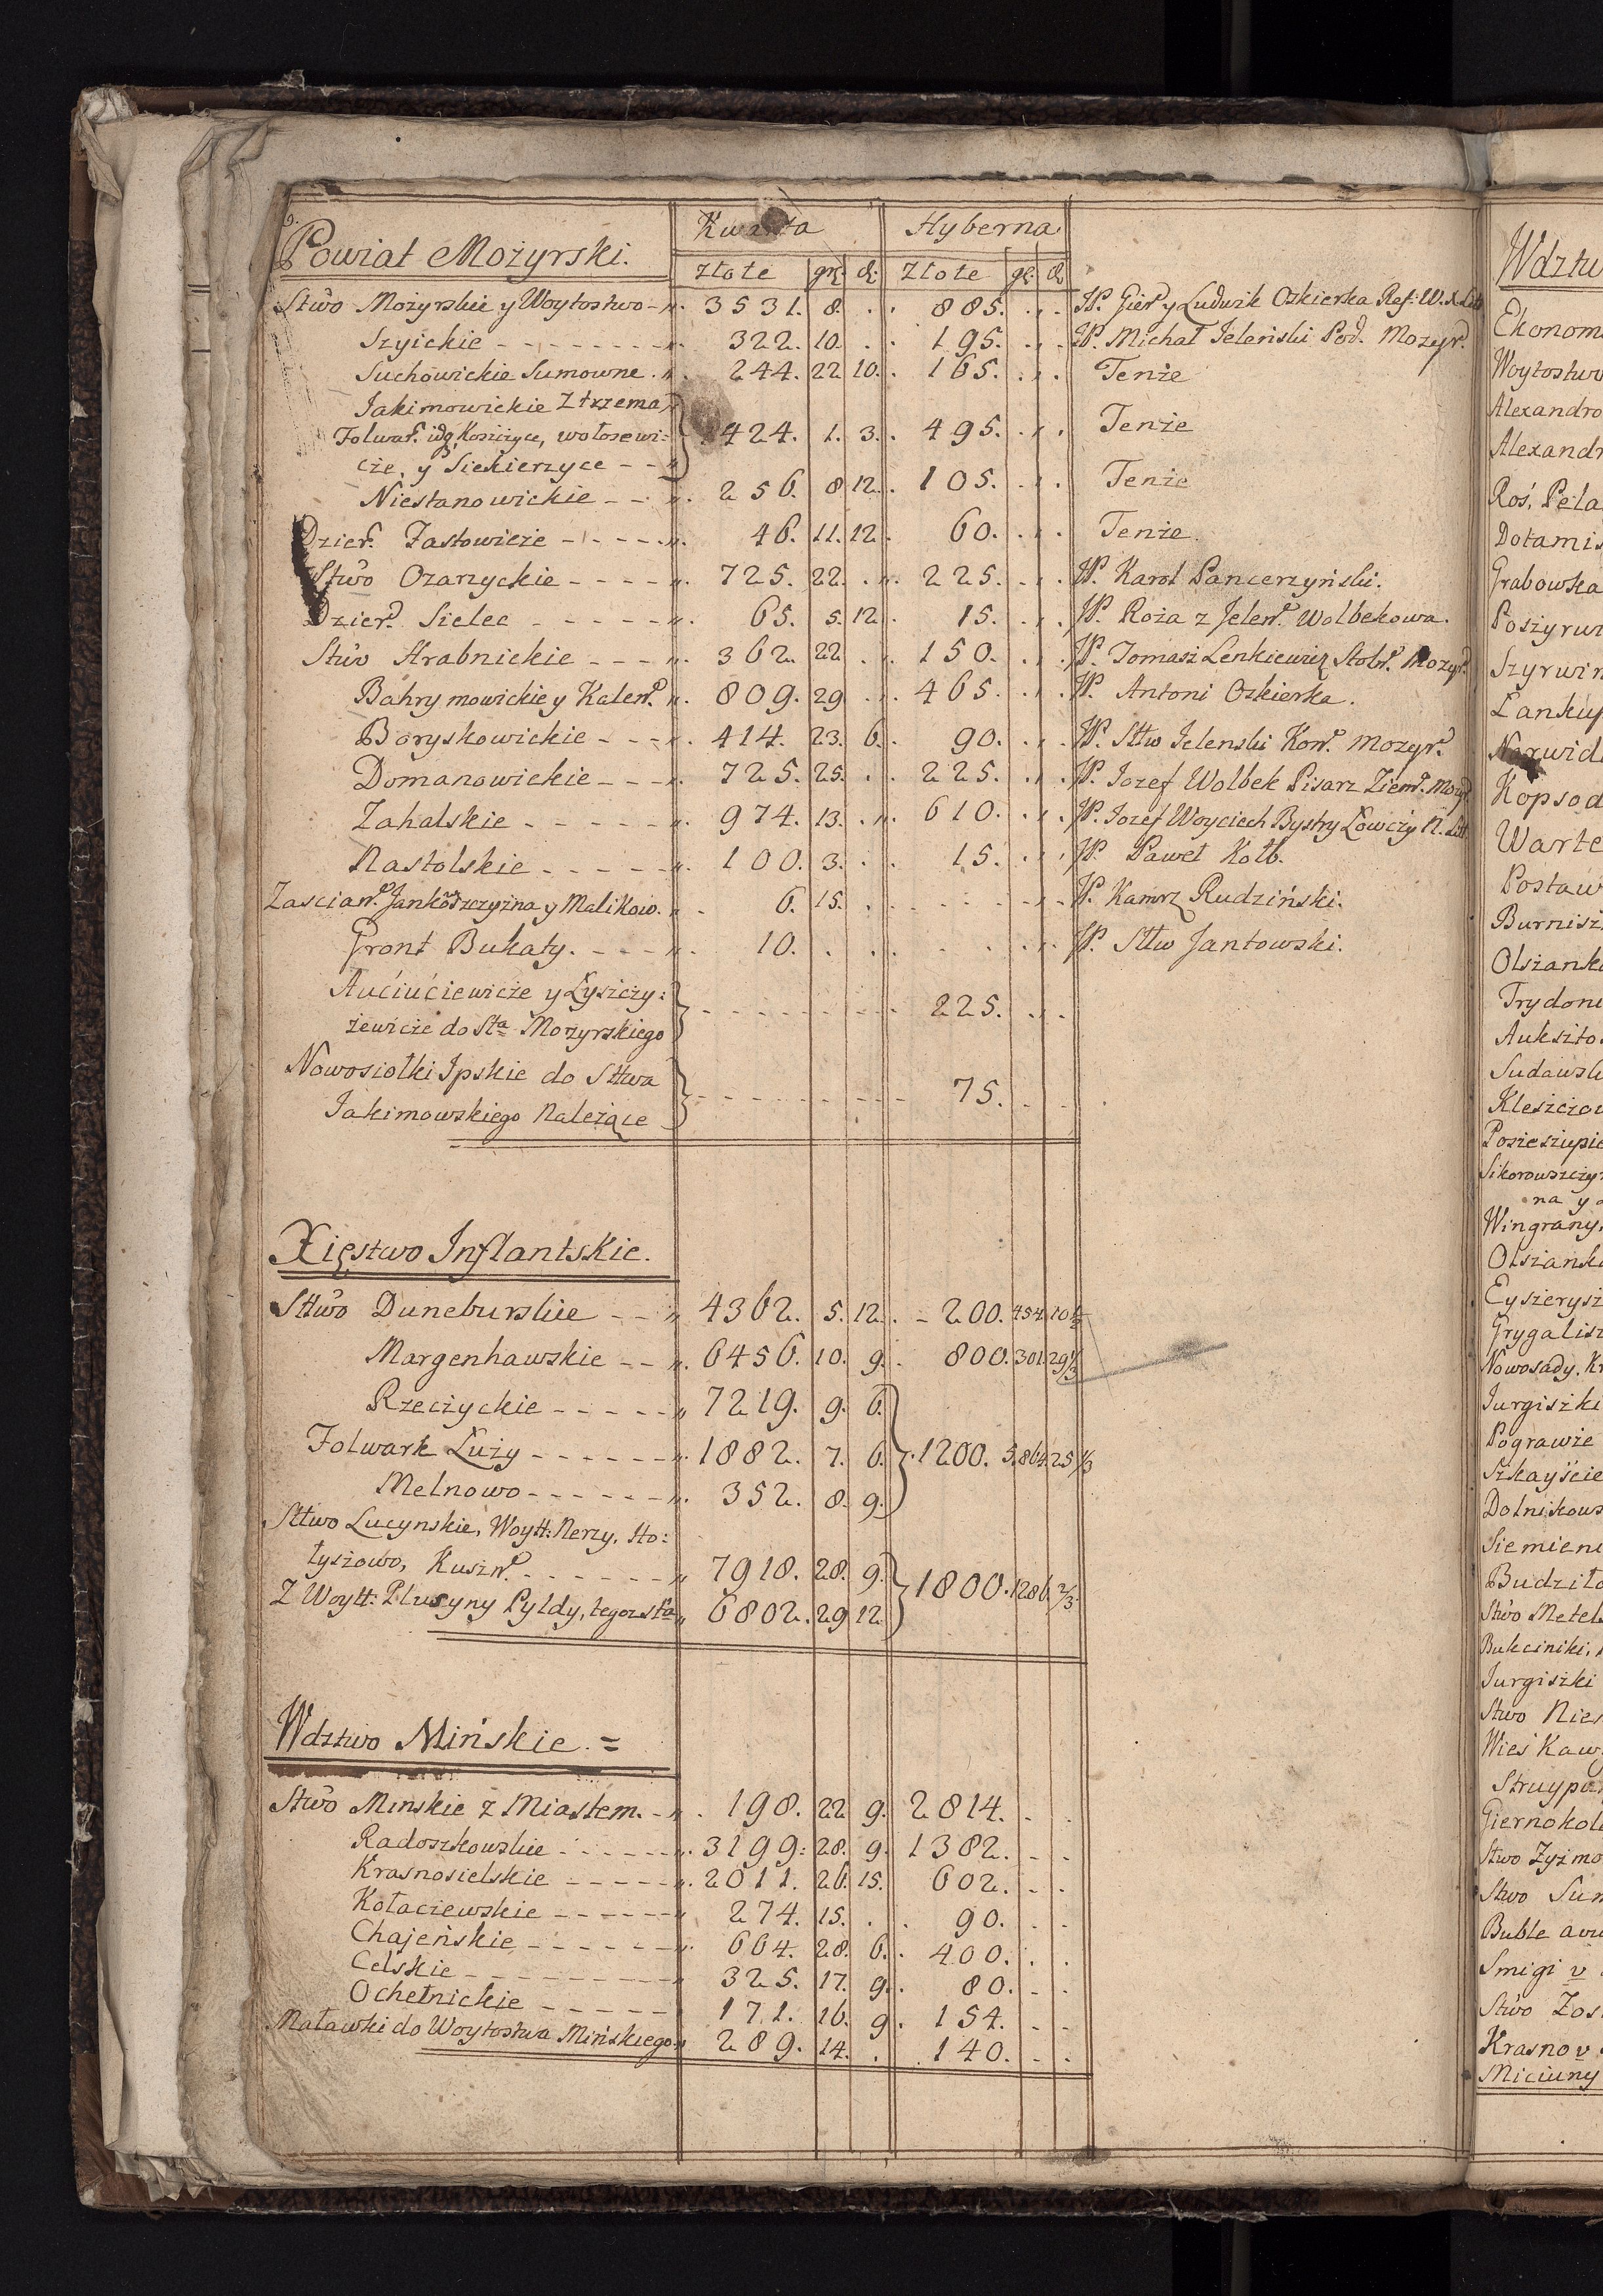 Powiat Mozyrski. Kwarta Hyberna
złote gr. d. złote gr. d.
Sttwo Mozyrskie y Woytostwo 3531. 8. 885. JP. Gier. y Ludwik Oskierka Ref: W.X.Litt
Szyickie 322. 10. 195. JP. Michał Jeleński Pod. Mozyr.
Suchowickie Sumowne. 244. 22 10. 165. Tenże
Jakimowickie Z trzema
Folwar. idq Koszczyce, wołosewi: 424. 1. 3. 495. Tenże
cze, y Siekierzyce
Niestanowickie 256. 8 12. 105. Tenże
Dzier. Zastowicze 46. 11. 12. 60. Tenże.
Sttwo Ozarzyckie 725. 22. 225. JP. Karol Pancerzyński.
Dzier. Sielec 65. 5. 12. 15. JP. Roża z Jeleń. Wolbekowa.
Sttwo Hrabnickie 362. 22 150. JP. Tomasz Lenkiewicz Stoln. Mozyr.
Bahrymowickie y Kalen. 809. 29 465. JP. Antoni Oskierka.
Boryskowickie 414. 23. 6. 90. JP. Sttw Jelenski Kon. Mozyr.
Domanowickie 725. 25. 225. JP. Jozef Wolbek Pisarz Ziem. Mozyr
Zahalskie 974. 13. 610. JP. Jozef Woyciech Bystry Łowczy N. Litt
Nastolskie 100. 3. 15. JP. Paweł Kolb.
Zascian. Jankowszczyzna y Malikow. 6. 15. JP. Kamrz Rudziński.
Gront Bukaty. 10. JP. Sttw Jantowski.
Auciuciewicze y Łyszczy: 225.
żewicze do Sta Mozyrskiego
Nowosiołki Ipskie do Sttwa 75.
Jakimowskiego Należące
Xięstwo Inflantskie.
Sttwo Duneburskie 4362. 5. 12. 200. 454. 10 1/2
Margenhawskie 6456. 10. 9. 800. 301. 29 1/3
Rzeczyckie 7219. 9. 6.
Folwark Łuży 1882. 7. 6. 1200. 5,864. 25 1/3
Melnowo 352. 8. 9.
Sttwo Lucynskie, Woytt: Nerzy, Ho:
łyszowo, Kuszn. 7918. 28. 9. 1800. 1286. 2/3
Z Woytt: Plusyny Pyldy, tegoz sta 6802. 29 12.
Wdztwo Mińskie. =
Sttwo Minskie z Miastem. 198. 22 9. 2814.
Radoszkowskie 3199: 28. 9. 1382.
Krasnosielskie 2011. 26. 15. 602.
Kołaczewskie 274. 15. 90.
Chajeńskie 664. 28. 6. 400.
Celskie 325. 17. 9. 80.
Ochełnickie 171. 16. 9. 154.
Matawki do Woytostwa Mińskiego 289. 14. 140.
Wdztw
Ekonom
Woytostwo
Alexandro
Alexandr
Roś, Pela
Dotamis
Grabowska
Poszyrwi
Szyrwin
Łankup
Narwid
Kopsod
Warte
Postaw
Burnisz
Olszansk
Trydon
Aukszto
Sudawsk
Kleszczow
Posieszupie
Sikorowszczyz
na y
Wingrany.
Olszansk
Eyszerysz
Grygalisz
Nowosady. Kr
Jurgiszki
Pograwże
Szkayście
Dolnikows
Siemieni
Budziło
Sttwo Metel
Bukciniki,
Jurgiszki
Sttwo Nie
Wieś Kaw
Struyp
Giernokol
Sttwo Zyzmo
Sttwo Sum
Buble
Smigi v
Sttwo Zos
Krasno v
Miciuny